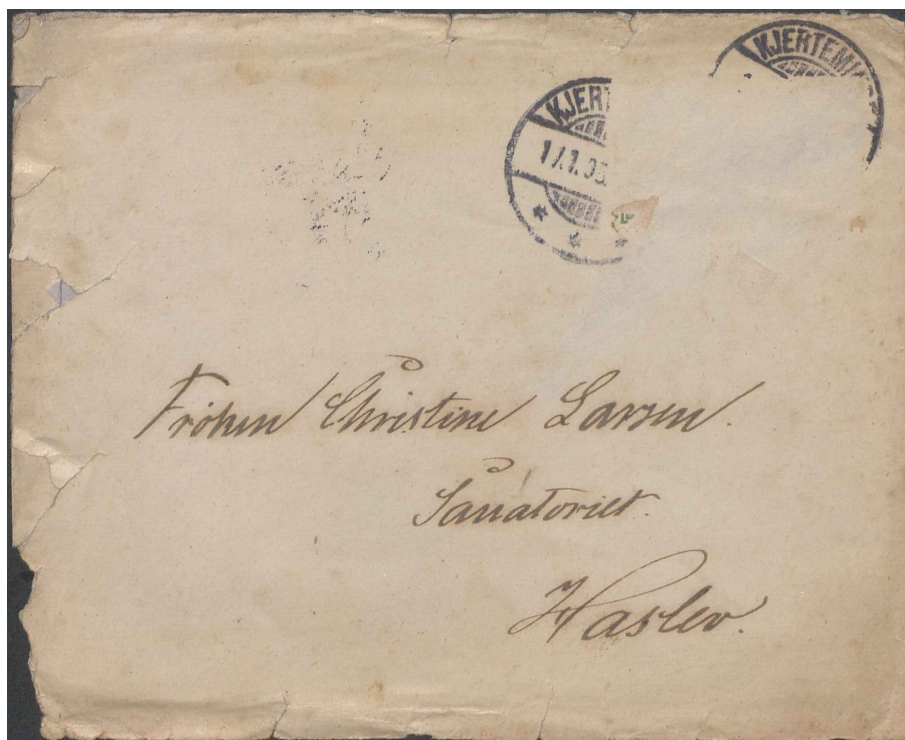 KJERTEMI
KJERT
17.1.05.
Fröken Christine Larsen.
Sanatoriet.
Haslev.